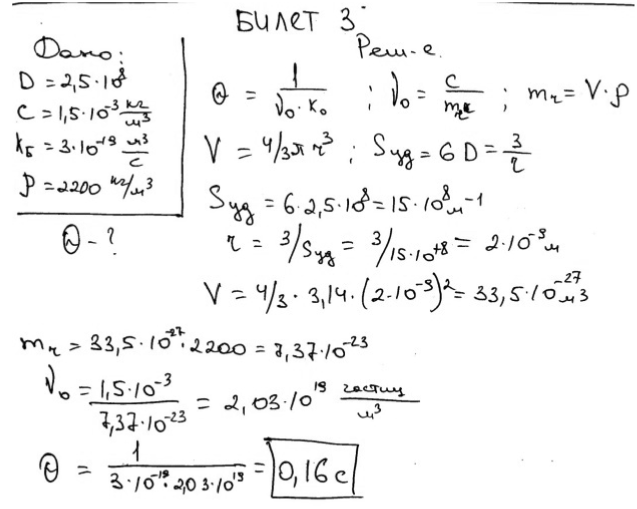 БИЛЕТ 3
Дано:
D = 2,5·10⁸
C = 1,5·10⁻³ кг/м³
k_Б = 3·10⁻¹⁹ м³/с
ρ = 2200 кг/м³
Θ - ?
Реш-е.
Θ = 1/(ν₀·K₀) ; ν₀ = C/mч ; mч = V·ρ
V = 4/3π r³ ; Sуд = 6D = 3/r
Sуд = 6·2,5·10⁸ = 15·10⁸ м⁻¹
r = 3/Sуд = 3/15·10⁺⁸ = 2·10⁻⁹ м
V = 4/3 · 3,14·(2·10⁻⁹)² = 33,5·10⁻²⁷ м³
mч = 33,5·10⁻²⁷·2200 = 7,37·10⁻²³
ν₀ = 1,5·10⁻³/7,37·10⁻²³ = 2,03·10¹⁹ частиц/м³
Θ = 1/(3·10⁻¹⁹·2,03·10¹⁹) = 0,16 с